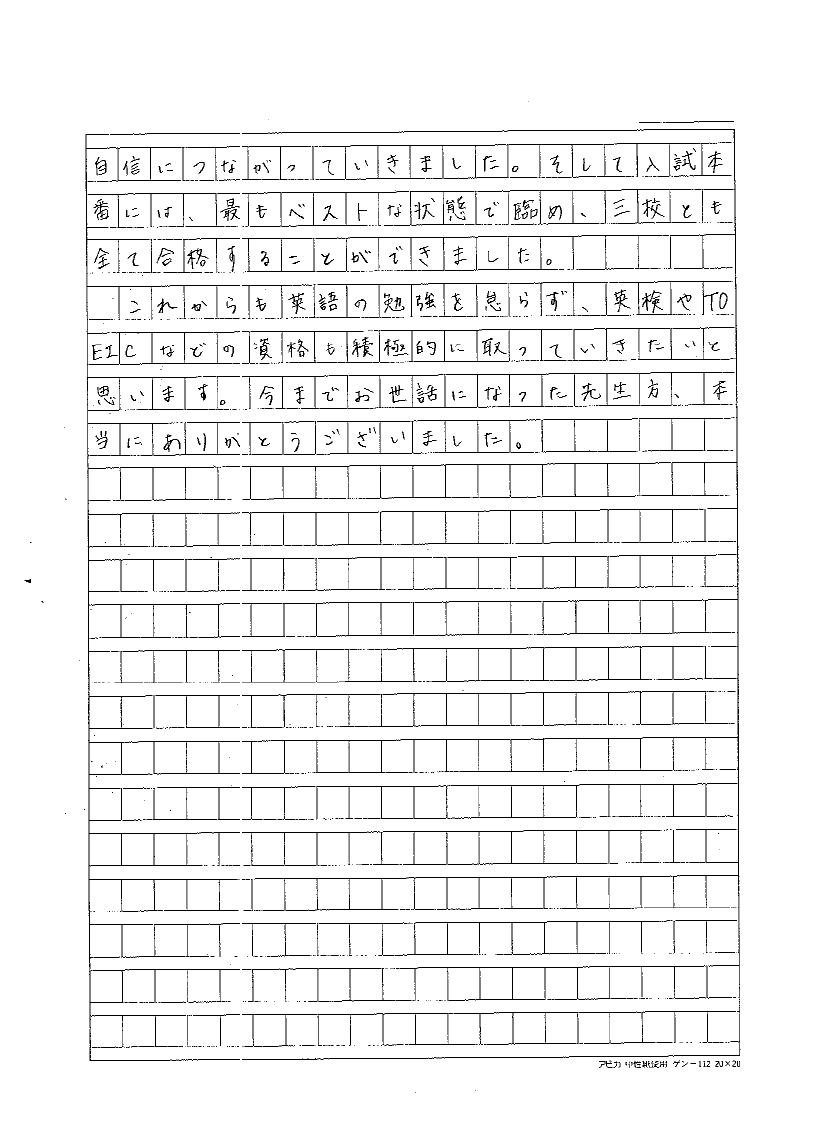 自信につながっていきました。そして入試本
番には、最もベストな状態で臨め、三校とも
全て合格することができました。
これからも英語の勉強を怠らず、英検やTO
EICなどの資格も積極的に取っていきたいと
思います。今までお世話になった先生方、本
当にありがとうございました。
アピカ 中性紙使用 ゲンー112 20×20